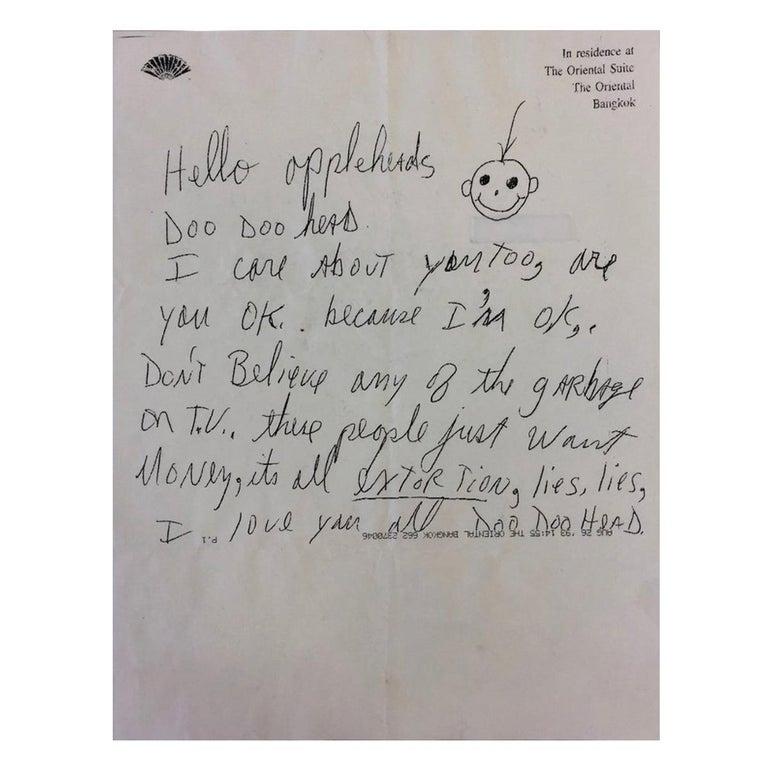 In residence at
The Oriental Suite
The Oriental
Bangkok
Hello appleheads
Doo Doo head.
I care about you too, are
you OK.. because I'm OK,.
Don't Believe any of the garbage
on T.V., these people just want
Money, its all extortion, lies, lies,
I love you all Doo Doo Head.
AUG 26 '93 14:55 THE ORIENTAL BANGKOK 662 2370046 P.1